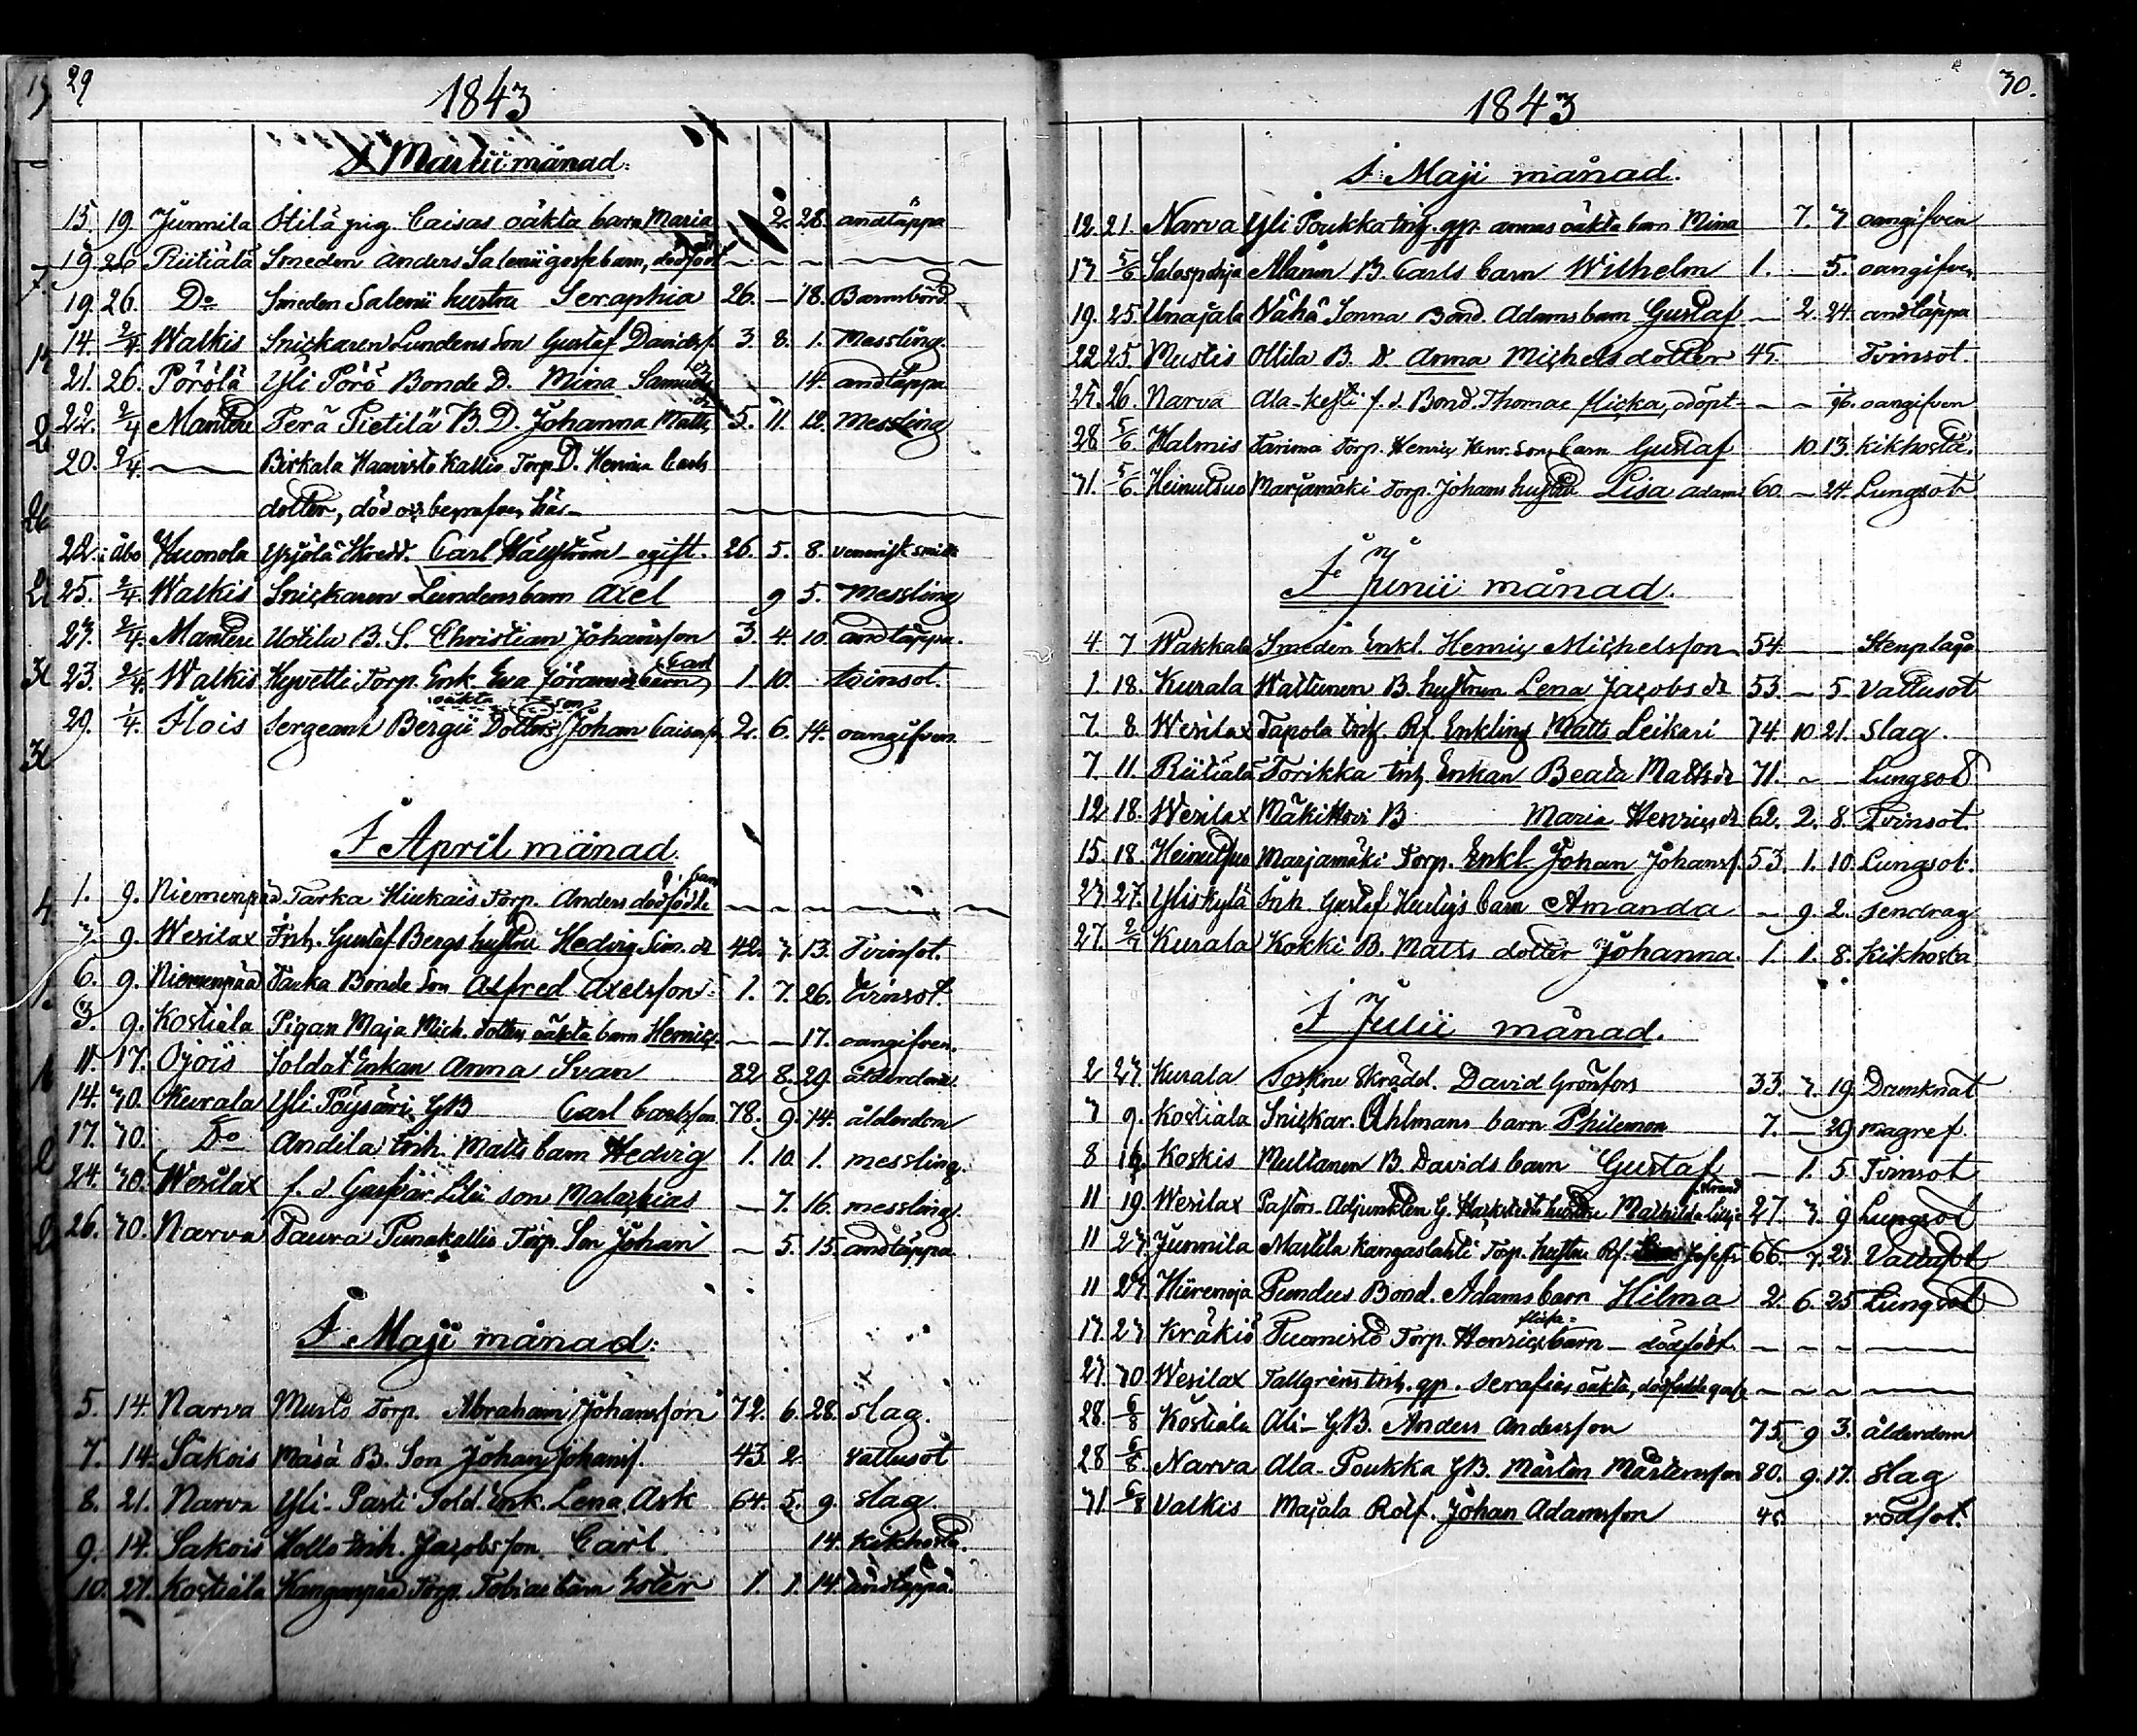 29
1843
I Martii månad.
15. 19. Junnila Stilä pig. Caisas oäkta barn Maria 2. 28. andtäppa
19. 26 Riitiälä Smeden Anders Salenii gossebarn, dödfödt
19. 26. Do Smeden Salenii hustru Seraphia 26. — 18. Barnsbörd
14. 2/4. Walkis Snickaren Lundens Son Gustaf Davidsf. 3. 8. 1. Messling.
21. 26. Pörölä Yli Pörö Bonde D. Mina Samuels dr 14. andtäppa
22. 2/4 Mantere Perä Pietilä B. D. Johanna Matts dr 5. 11. 12. Messling
20. 2/4. Birkala Haavisto Kallio Torp. D. Henrica Carls
dotter, död och begrafven här
22. åbo Huonola Yrjölä Skredd. Carl Hällström ogift. 26. 5. 8. venerisk smitta
25. 2/4. Walkis Snickaren Lundens barn Axel 9 5. Messling
27. 2/4. Mantere Uotila B. S. Christian Johansson 3. 4. 10. andtäppa.
23. 2/4. Walkis Hyvetti Torp. Enk. Eva Jöransdr barn Carl 1. 10. tvinsot.
29. 1/4. Flois Sergeant Bergii Dotters oäkta son Johan Caisasf. 2. 6. 14. oangifven.
I April månad.
1. 9. Niemenpää Tarka Hiukais Torp. Anders 2: barn dödfödde
7. 9. Wesilax Inh. Gustaf Bergs hustru Hedvig Sim. dr 42. 7. 13. Tvinsot.
6. 9. Niemenpää Tarka Bonde Son Alfred Axelsson 1. 7. 26. tvinsot.
3. 9. Kostiala Pigan Maja Mich. dotters oäkta barn Henric. — — 17. oangifven.
11. 17. Ojois Soldat Enkan Anna Svan 82 8. 29 ålderdom
14. 30. Kurala Yli Pöysäri GB Carl Carlsson 78. 9. 14. ålderdom
17. 30. Do Andila Inh. Matts barn Hedvig 1. 10. 1. messling.
24. 30. Wesilax f. d. Gaspar Lilii son Malachias — 7. 16. messling.
26. 30. Narva Paura Punakallio Torp. Son Johan — 5. 15. andtäppa
I Maji månad:
5. 14. Narva Musto Torp. Abraham Johansson 72. 6. 28. slag.
7. 14. Säkois Mäsä B. Son Johan Johansf. 43. 2. vattusot
8. 21. Narva Yli-Pasti Sold. Enk. Lena Ask 64. 5. 9. slag.
9. 14. Sakois Hollo Inh. Jacobsson Carl. 14. kikhosta.
10. 21. Kostiala Kanganpää Torp. Tobias barn Ester 1. 1. 14. andtäppa.
30.
1843
I Maji månad.
12. 21. Narva Yli Poukka Inh. gp. annas oäkta barn Mina 7. 7 oangifven
13 5/6 Salospohja Alanen B. Carls barn Wilhelm 1. — 5. oangifven
19. 25. Unajala Vähä Sonna Bond. Adams barn Gustaf — 2. 24. andtäppa
22 25. Mustis Ollila B. D. Anna Michelsdotter 45. Tvinsot.
25. 26. Narva Ala-Kesti f. d. Bond. Thomae flicka, odöpt — — oangifven
28 5/6 Halmis Tarima Torp. Henric Henr. Sons barn Gustaf 10. 13. kikhosta.
31. 5/6. Heinutsuo Marjamäki Torp. Johans hustru Lisa Adams 60. — 24. Lungsot
I Junii månad.
4. 7 Wakkala Smeden Enkl. Henric Michelsson 54. — — Stenplåga
1. 18. Kurala Wattunen B. hustrun Lena Jacobs dr 53. — 5. Vattusot
7. 8. Wesilax Tapola Inh. Rf. Enkling Matts Leikari 74. 10. 21. Slag.
7. 11. Riitiälä Torikka Inh. Enkan Beata Matts dr 71. — — Lungsot
12 18. Wesilax Mäki B Maria Henrics dr 62. 2. 8. Tvinsot.
15. 18. Heinutsuo Marjamäki Torp. Enkl. Johan Johansf. 53. 1. 10. Lungsot.
23 27. Yliskylä Inh. Gustaf barn Amanda — 9. 2. sendrag
27. 2/7 Kurala Kokki B. Matts dotter Johanna. 1. 1. 8. Kikhosta
I Julii månad.
2 23 Kurala Skrädd. David Grönfors 33. 7. 19. Drunknat
7 9. Kostiala Snickar. Åhlmans barn Philemon 7. — 29 magref.
8 16. Koskis Multanen B. Davids barn Gustaf — 1. 5. Tvinsot
11 19. Wesilax Pastors Adjunkten G. hustru Mathilda Liljestrand 27. 7. 9 Lungsot
11 23. Junnila Martila Kangaslahti Torp. hustru Rf. Josefs 66. 7. 23. Vattusot
11 23. Hiirenoja Pundus Bond. Adams barn Hilma 2. 6. 25 Lungsot
13 23 Kräkiö Tuomisto Torp. Henrics flicka-barn — dödfödt.
23 30 Wesilax Tallgrens Inh. gp. Serafias oäkta, dödfödde gosse
28. 6/8 Kostiala Ali-GB. Anders Andersson 75. 9 3. ålderdom
28 6/8 Narva Ala-Poukka GB. Mårten Mårtensson 80. 9. 17. Slag
31 6/8 Valkis Majala Rolf. Johan Adamsson 45. rödsot.